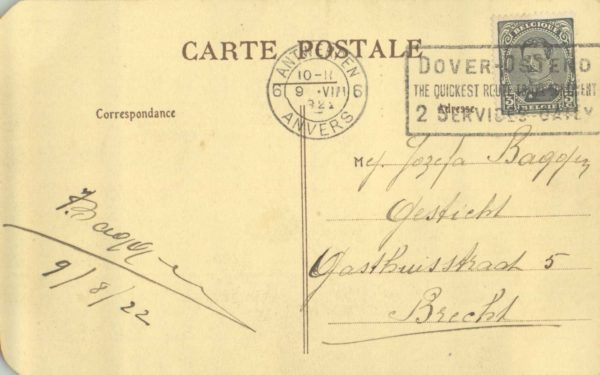 CARTE POSTALE
BELGIQUE
BELGIË
ANTWERPEN
10-11
6 9 VIII 6
1922
ANVERS
DOVER-OSTEND
THE QUICKEST ROUTE
2 SERVICES DAILY
Correspondance
Adresse
Mej. Jozefa Baggen
Gesticht
Gasthuisstraat 5
Brecht
J. Baggen
9/8/22